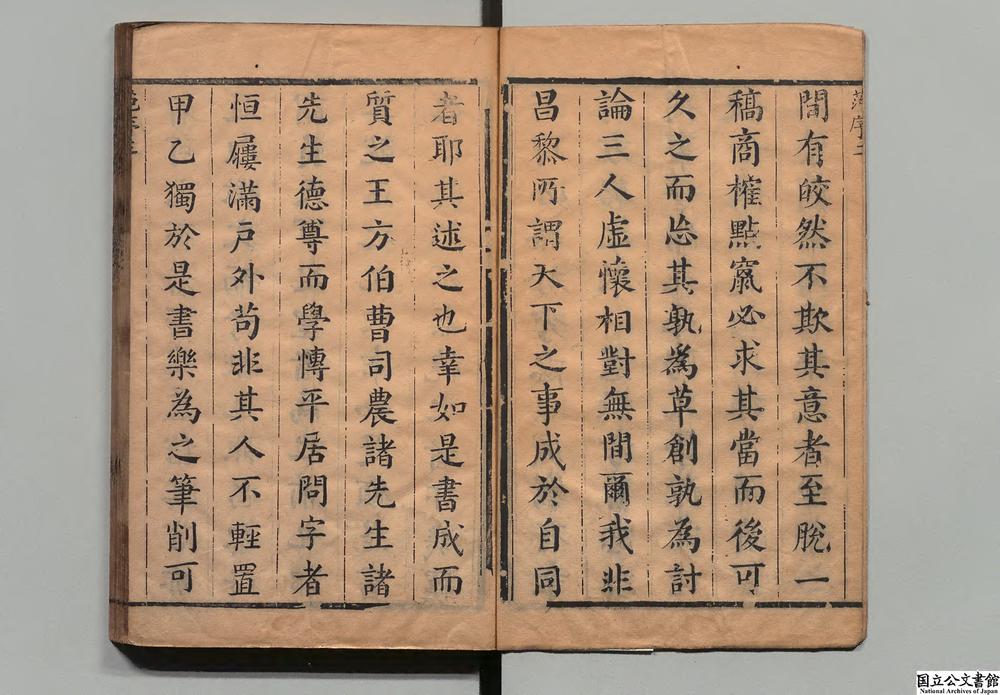 間有皎然不欺其意者至脫一
稿商榷點竄必求其當而後可
久之而忘其孰爲草創孰為討
論三人虛懷相對無間爾我非
昌黎所謂天下之事成於自同
者耶其述之也幸如是書成而
質之王方伯曹司農諸先生諸
先生德尊而學博平居問字者
恒屨滿戶外苟非其人不輕置
甲乙獨於是書樂為之筆削可
国立公文書館
National Archives of Japan